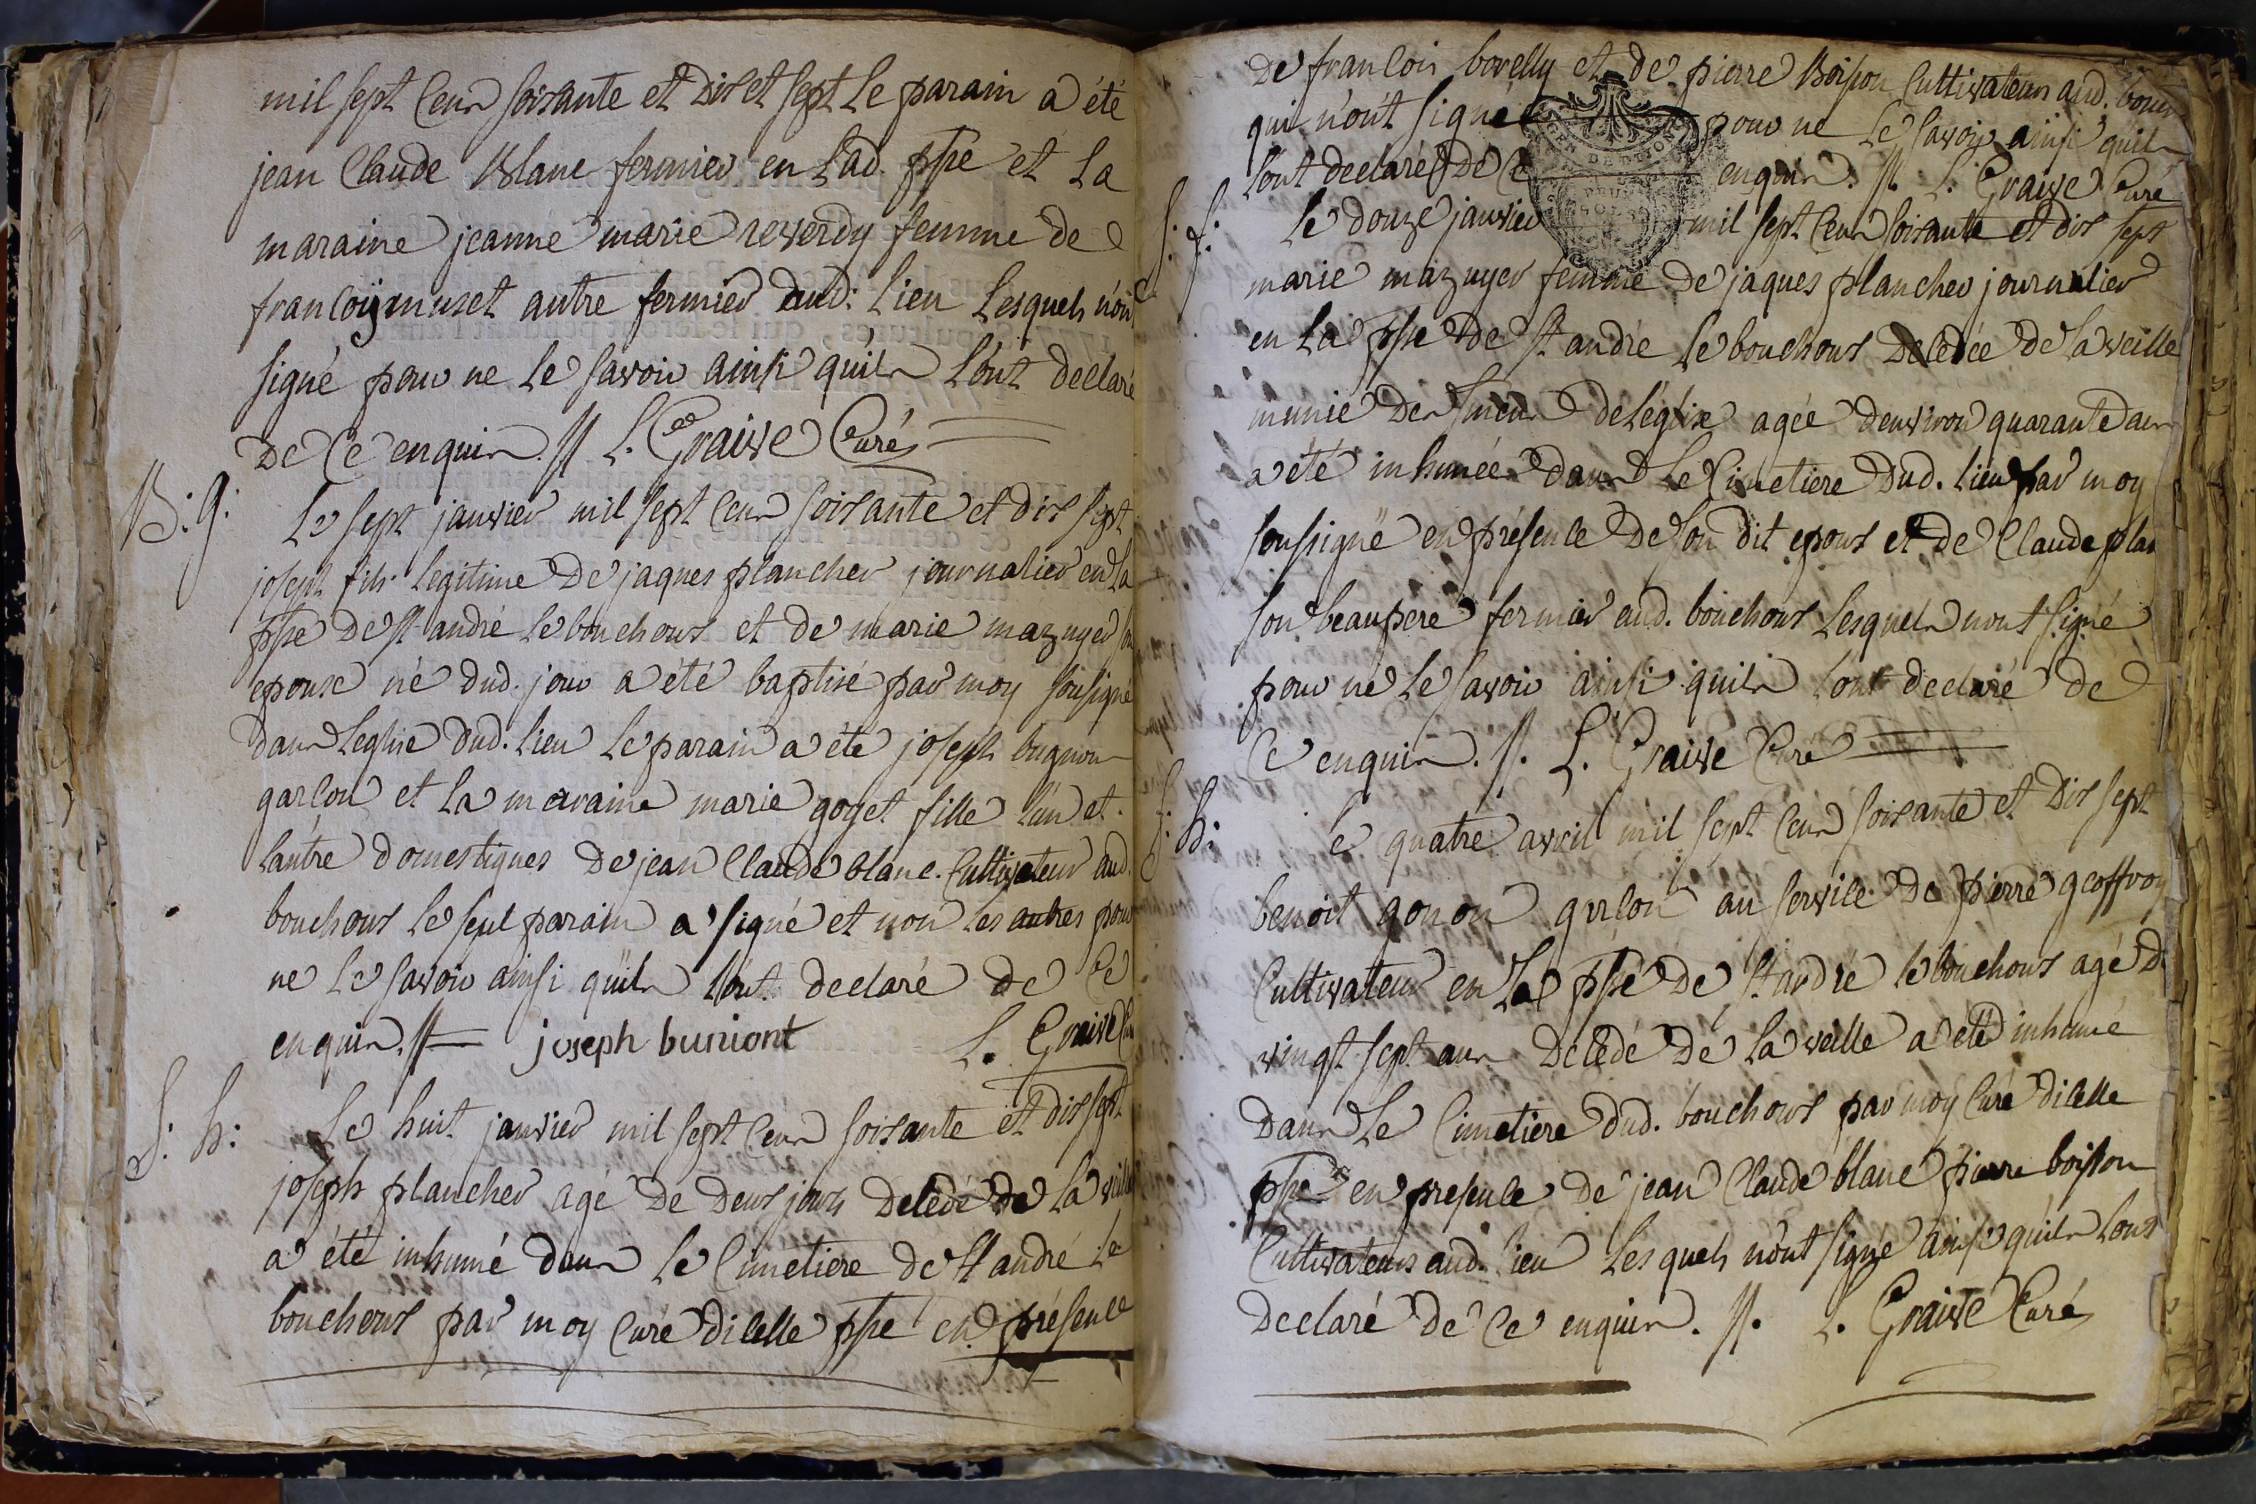 mil sept Cens soixante et Dix et sept Le parain a été
jean Claude Blanc fermier en Lad. psse et La
maraine jeanne marie reverdy femme de
françois muset autre fermier dud: Lieu Lesquels n'ont
signé pour ne Le savoir ainsi qu'ils l'ont declaré
De Ce enquis .// L. Graive Curé
B: g:
Le sept janvier mil sept Cens soixante et dix sept
joseph fils Legitime De jaques plancher journalier en La
psse de St andré Le bouchoux et de marie mazuyer son
epouse né dud. jour a été baptisé par moy sousigné
dans Leglise dud. Lieu Le parain a été joseph bugnon
garçon et La maraine marie goyet fille l'un et
lautre domestiques De jean Claude blanc Cultivateur aud.
bouchoux Le seul parain a signé et non les autres pour
ne Le savoir ainsi qu'ils l'ont declaré de Ce
enquis .// joseph buniont L. Graive Cu
S: h:
Le huit janvier mil sept Cens soixante et dix sept
joseph plancher agé De Deux jours Decedé de La veille
a été inhumé dans Le Cimetiere de St andré Le
bouchoux par moy Curé dicelle psse en présence
De francois borelly et de pierre Boisson Cultivateurs aud. bouch
qui n'ont signé pour ne Le savoir ainsi quils
lont declaré De Ce enquis . // . L. Graive Curé
S: f:
Le douze janvier mil sept Cens soixante et dix sept
marie mazuyer femme de jaques plancher journalier
en La psse de St andré Le bouchoux Decedée de La veille
munie des de léglise agée denviron quarante ans
a été inhumée dans Le Cimetiere Dud. Lieu par moy
soussigné en présence De son dit epoux et de Claude plan
son beaupere fermier aud. bouchoux Lesquels nont signé
pour ne Le savoir ainsi quils l'ont declaré de
Ce enquis . // . L. Graive Curé
S: h:
e quatre avril mil sept Cens soixante et Dix sept
benoit gonon garçon au service De pierre geoffroy
Cultivateur en La psse de St andré le bouchoux agé D
vingt sept ans Decedé De La veille a eté inhumé
Dans Le Cimetiere dud. bouchoux par moy Curé dicelle
psse en presence de jean Claude blanc pierre boisson
Cultivateurs aud. lieu Lesquels n'ont signé ainsi quils lont
Declaré de Ce enquis . // . L. Graive Curé